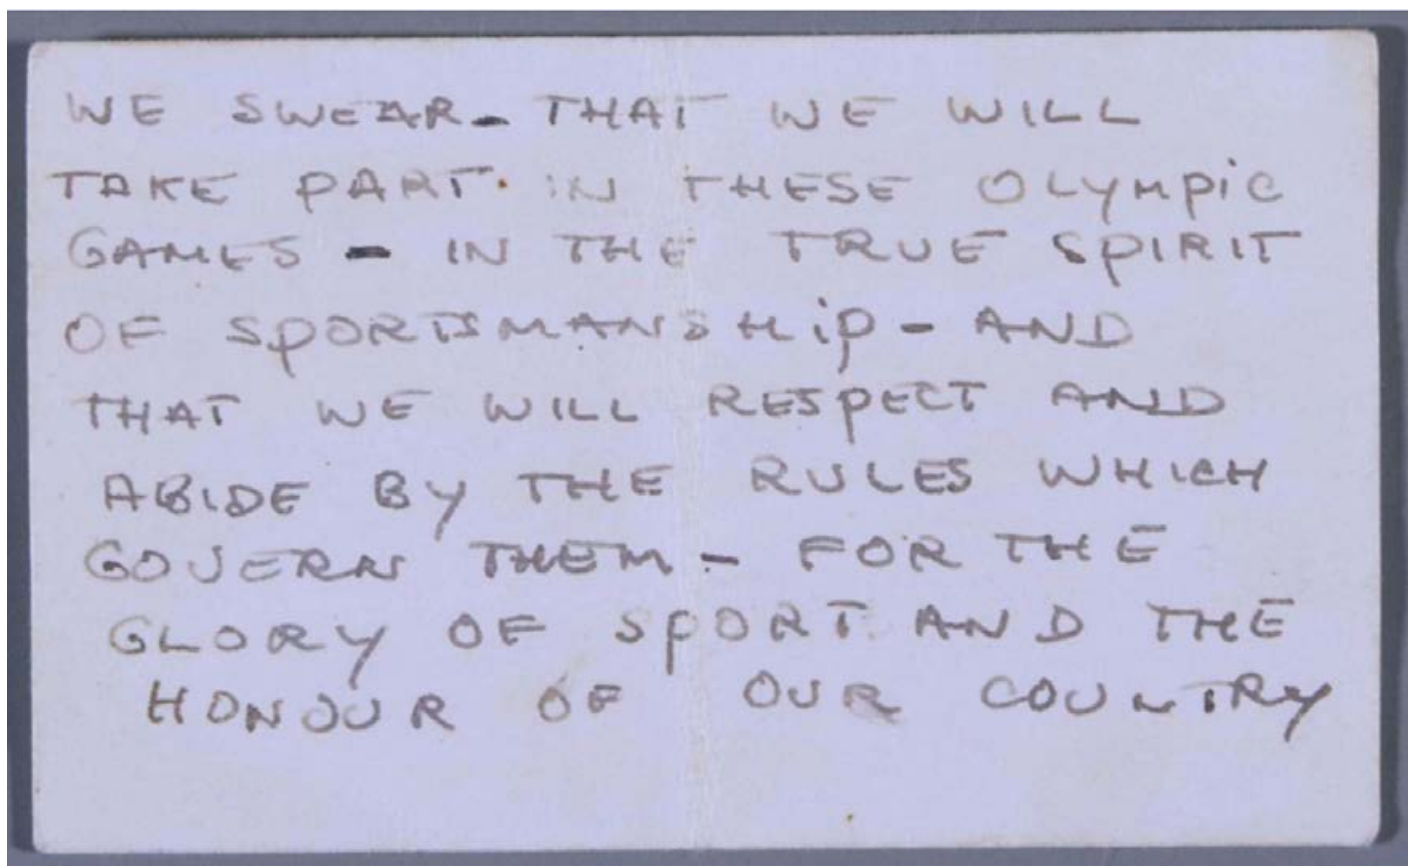 WE SWEAR - THAT WE WILL
TAKE PART. IN THESE OLYMPIC
GAMES - IN THE TRUE SPIRIT
OF SPORTSMANSHIP - AND
THAT WE WILL RESPECT AND
ABIDE BY THE RULES WHICH
GOVERN THEM - FOR THE
GLORY OF SPORT AND THE
HONOUR OF OUR COUNTRY